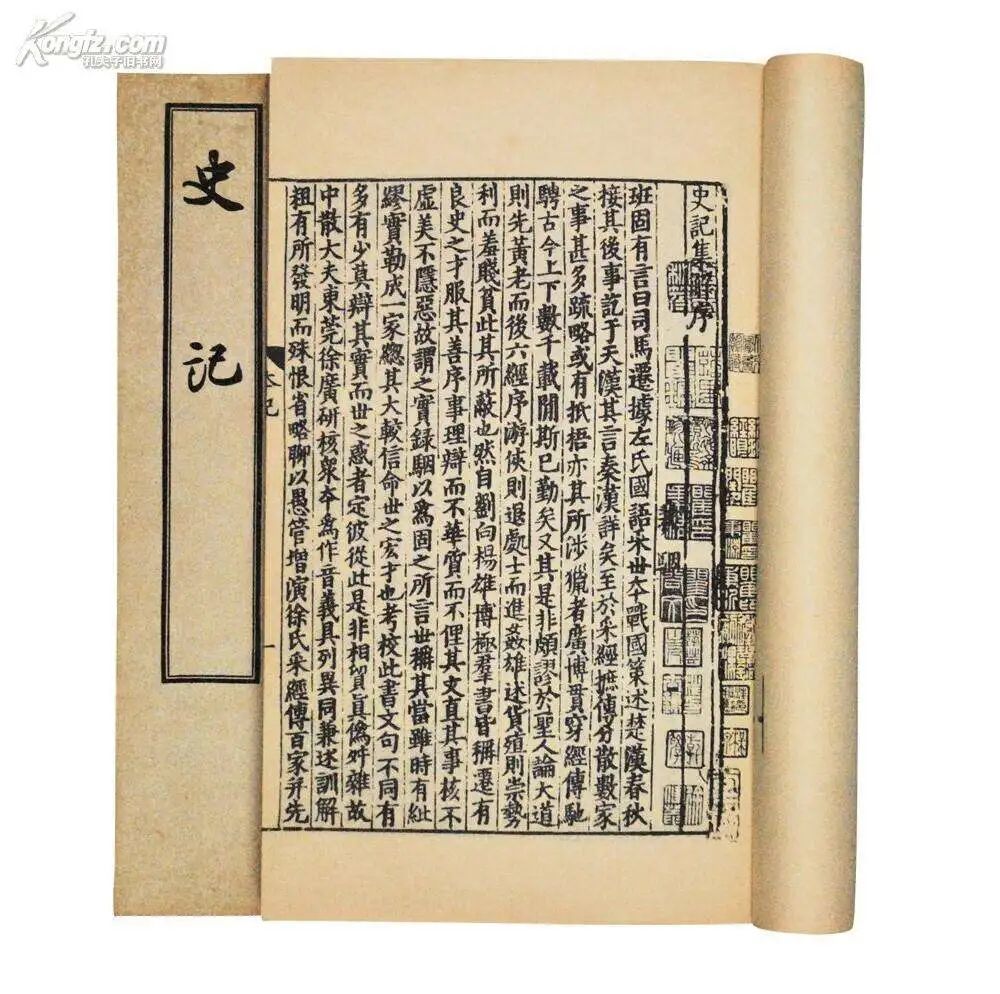 Kongfz.com
孔夫子旧书网
史记
史記集解序
班固有言曰司馬遷據左氏國語采世本戰國策述楚漢春秋
接其後事訖于天漢其言秦漢詳矣至於采經摭傳分散數家
之事甚多疏略或有抵梧亦其所涉獵者廣博貫穿經傳馳
騁古今上下數千載間斯已勤矣又其是非頗謬於聖人論大道
則先黃老而後六經序游俠則退處士而進姦雄述貨殖則崇勢
利而羞賤貧此其所蔽也然自劉向楊雄博極羣書皆稱遷有
良史之才服其善序事理辯而不華質而不俚其文直其事核不
虛美不隱惡故謂之實錄駰以爲固之所言世稱其當雖時有紕
繆實勒成一家總其大較信命世之宏才也考校此書文句不同有
多有少莫辯其實而世之惑者定彼從此是非相貿真僞舛雜故
中散大夫東莞徐廣研核衆本爲作音義具列異同兼述訓解
粗有所發明而殊恨省略聊以愚管增演徐氏采經傳百家并先